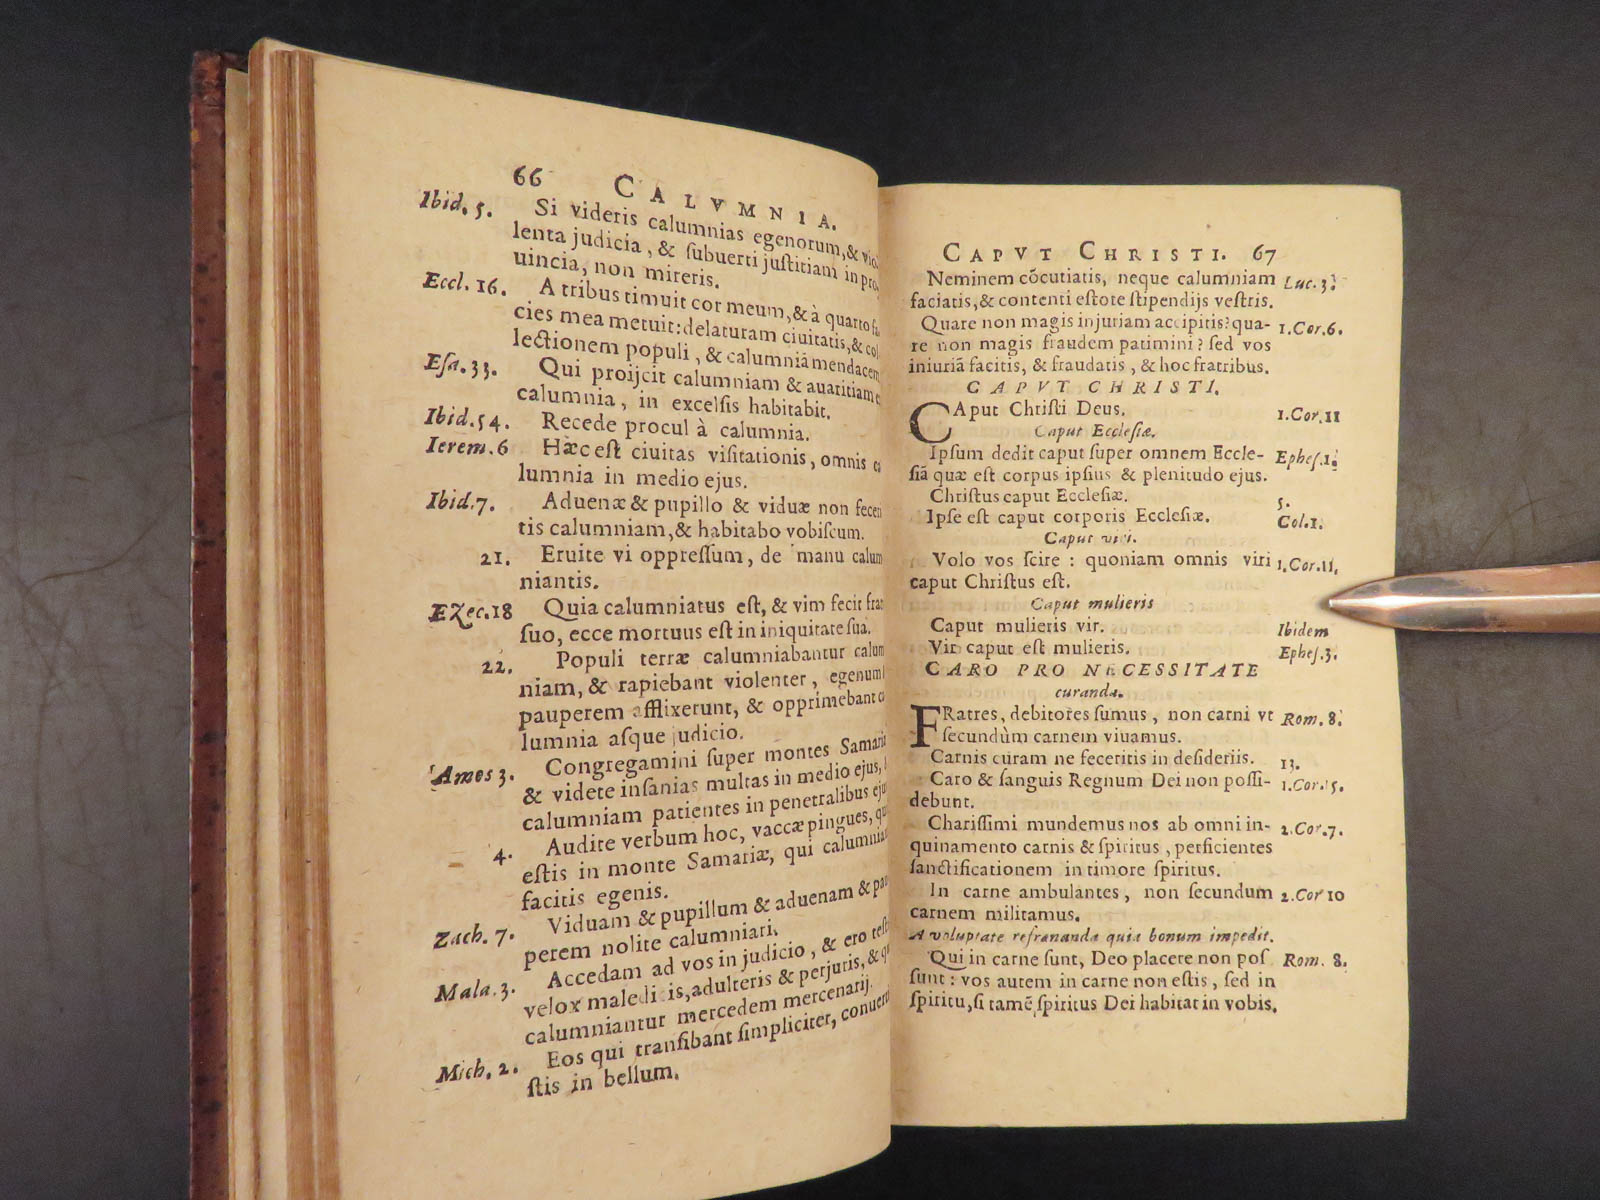 66 CALVMNIA.
Ibid. 5. Si videris calumnias egenorum, & vio-
lenta judicia, & ſubuerti juſtitiam in pro-
uincia, non mireris.
Eccl. 16. A tribus timuit cor meum, & à quarto fa-
cies mea metuit: delaturam ciuitatis, & col
lectionem populi, & calumniā mendacem
Eſa. 33. Qui proijcit calumniam & auaritiam e
calumnia, in excelſis habitabit.
Ibid. 54. Recede procul à calumnia.
Ierem. 6 Hæc eſt ciuitas viſitationis, omnis ca
lumnia in medio ejus.
Ibid. 7. Aduenæ & pupillo & viduæ non fecen
tis calumniam, & habitabo vobiſcum.
21. Eruite vi oppreſſum, de manu calum
niantis.
Ezec. 18 Quia calumniatus eſt, & vim fecit frat
ſuo, ecce mortuus eſt in iniquitate ſua.
22. Populi terræ calumniabantur calum
niam, & rapiebant violenter, egenum
pauperem afflixerunt, & opprimebant ca
lumnia aſque judicio.
Amos 3. Congregamini ſuper montes Samariæ
& videte inſanias multas in medio ejus,
calumniam patientes in penetralibus eju
4. Audite verbum hoc, vaccæ pingues, qu
eſtis in monte Samariæ, qui calumniam
facitis egenis.
Zach. 7. Viduam & pupillum & aduenam & pau
perem nolite calumniari.
Mala. 3. Accedam ad vos in judicio, & ero teſt
velox maledicis, adulteris & perjuris, & qu
calumniantur mercedem mercenarij.
Mich. 2. Eos qui tranſibant ſimpliciter, conuerti
ſtis in bellum.
CAPVT CHRISTI. 67
Neminem cōcutiatis, neque calumniam Luc. 3.
faciatis, & contenti eſtote ſtipendijs veſtris.
Quare non magis injuriam accipitis? qua- 1. Cor. 6.
re non magis fraudem patimini? ſed vos
iniuriā facitis, & fraudatis, & hoc fratribus.
CAPVT CHRISTI.
CAput Chriſti Deus. 1. Cor. 11
Caput Eccleſiæ.
Ipſum dedit caput ſuper omnem Eccle- Epheſ. 1.
ſiā quæ eſt corpus ipſius & plenitudo ejus.
Chriſtus caput Eccleſiæ. 5.
Ipſe eſt caput corporis Eccleſiæ. Col. 1.
Caput viri.
Volo vos ſcire: quoniam omnis viri 1. Cor. 11.
caput Chriſtus eſt.
Caput mulieris
Caput mulieris vir. Ibidem
Vir caput eſt mulieris. Epheſ. 3.
CARO PRO NECESSITATE
curanda.
FRatres, debitores ſumus, non carni vt Rom. 8.
ſecundùm carnem viuamus.
Carnis curam ne feceritis in deſideriis. 13.
Caro & ſanguis Regnum Dei non poſſi- 1. Cor. 15.
debunt.
Chariſſimi mundemus nos ab omni in- 2. Cor. 7.
quinamento carnis & ſpiritus, perficientes
ſanctificationem in timore ſpiritus.
In carne ambulantes, non ſecundum 2. Cor 10
carnem militamus.
A voluptate refrananda quia bonum impedit.
Qui in carne ſunt, Deo placere non poſ Rom. 8.
ſunt: vos autem in carne non eſtis, ſed in
ſpiritu, ſi tamē ſpiritus Dei habitat in vobis.